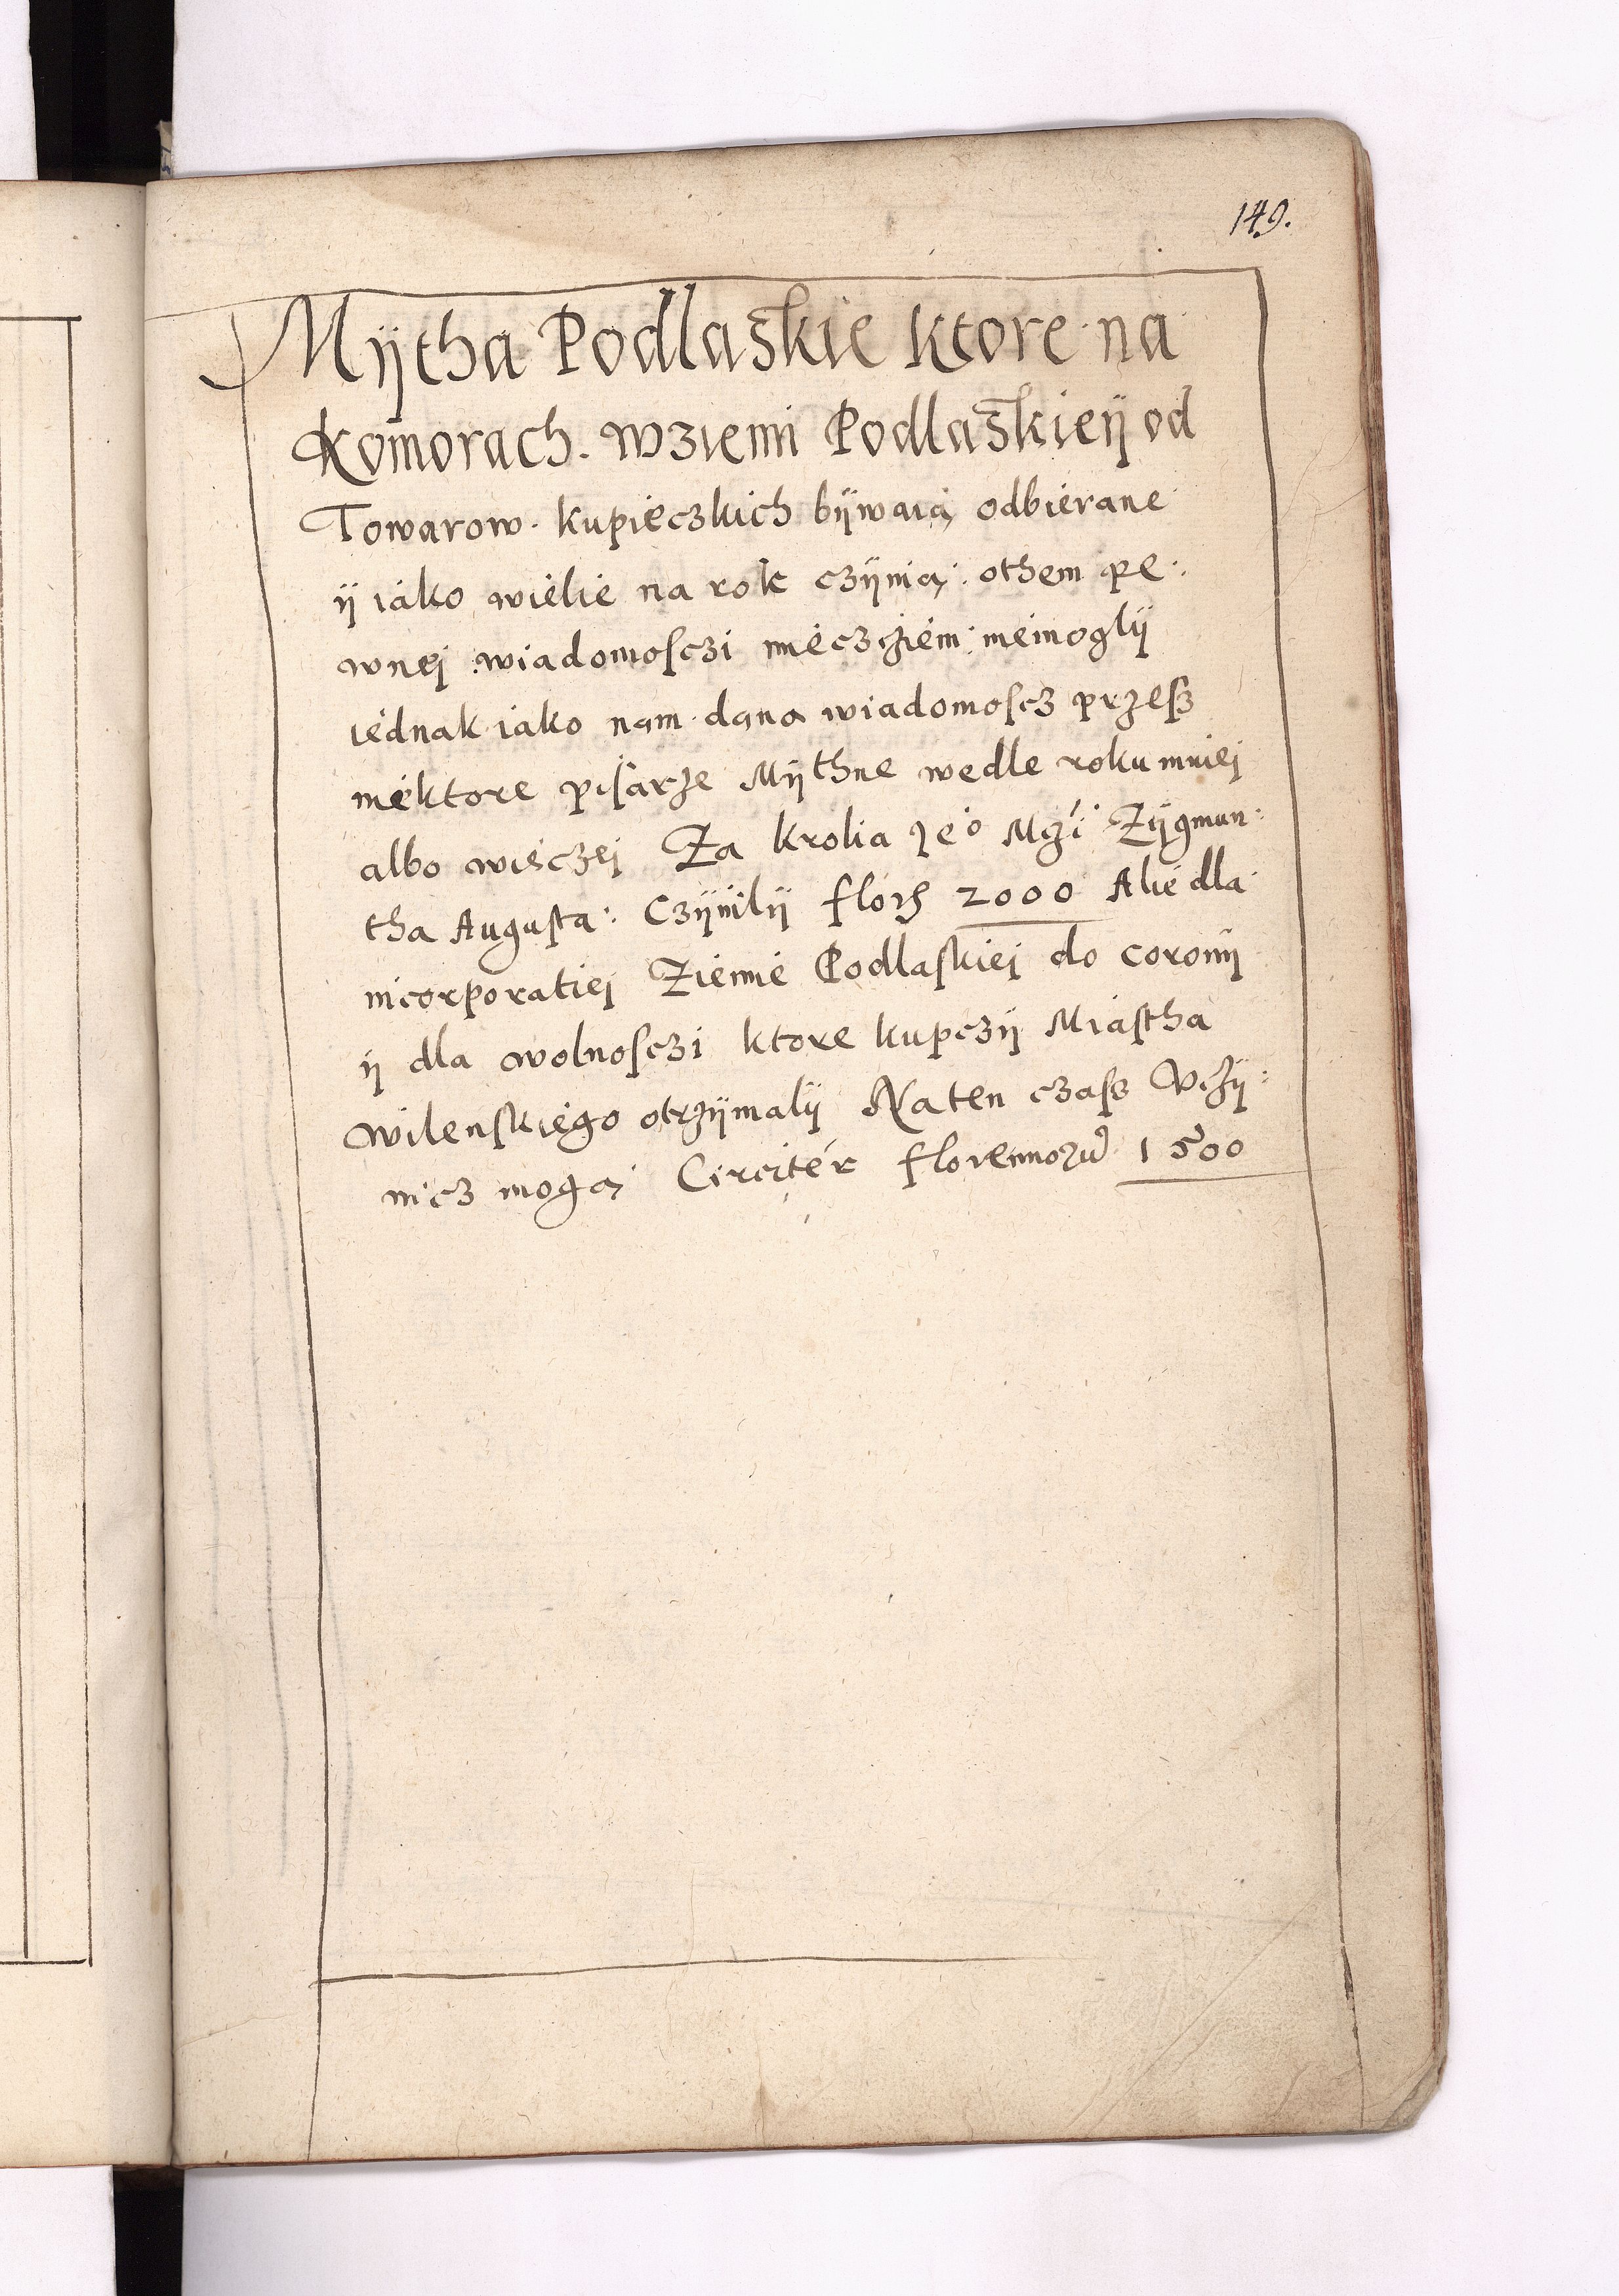 149.
Mÿtha Podlaskie ktore na
Komorach. wziemi Podlaskieÿ od
Towarow. kupieczkich bÿwaią odbierane
ÿ iako wielie na rok czÿnią: othem pe:
wnej wiadomosczi mieczżiem niemoglÿ
iednak iako nam dana wiadomoscz przess
niektore pisarze Mÿthne wedle roku mniej
albo więczej Za krolia Jeo Mczi Zÿgmun:
tha Augusta: Czÿnilÿ flor 2000 Alie dla
incorporatiej Ziemie Podlaskiej do coronÿ
ÿ dla wolnosczi ktore kupczÿ Miastha
wilenskiego otrzÿmalÿ Naten czass Vczÿ:
nicz mogą Circiter florenorū 1500